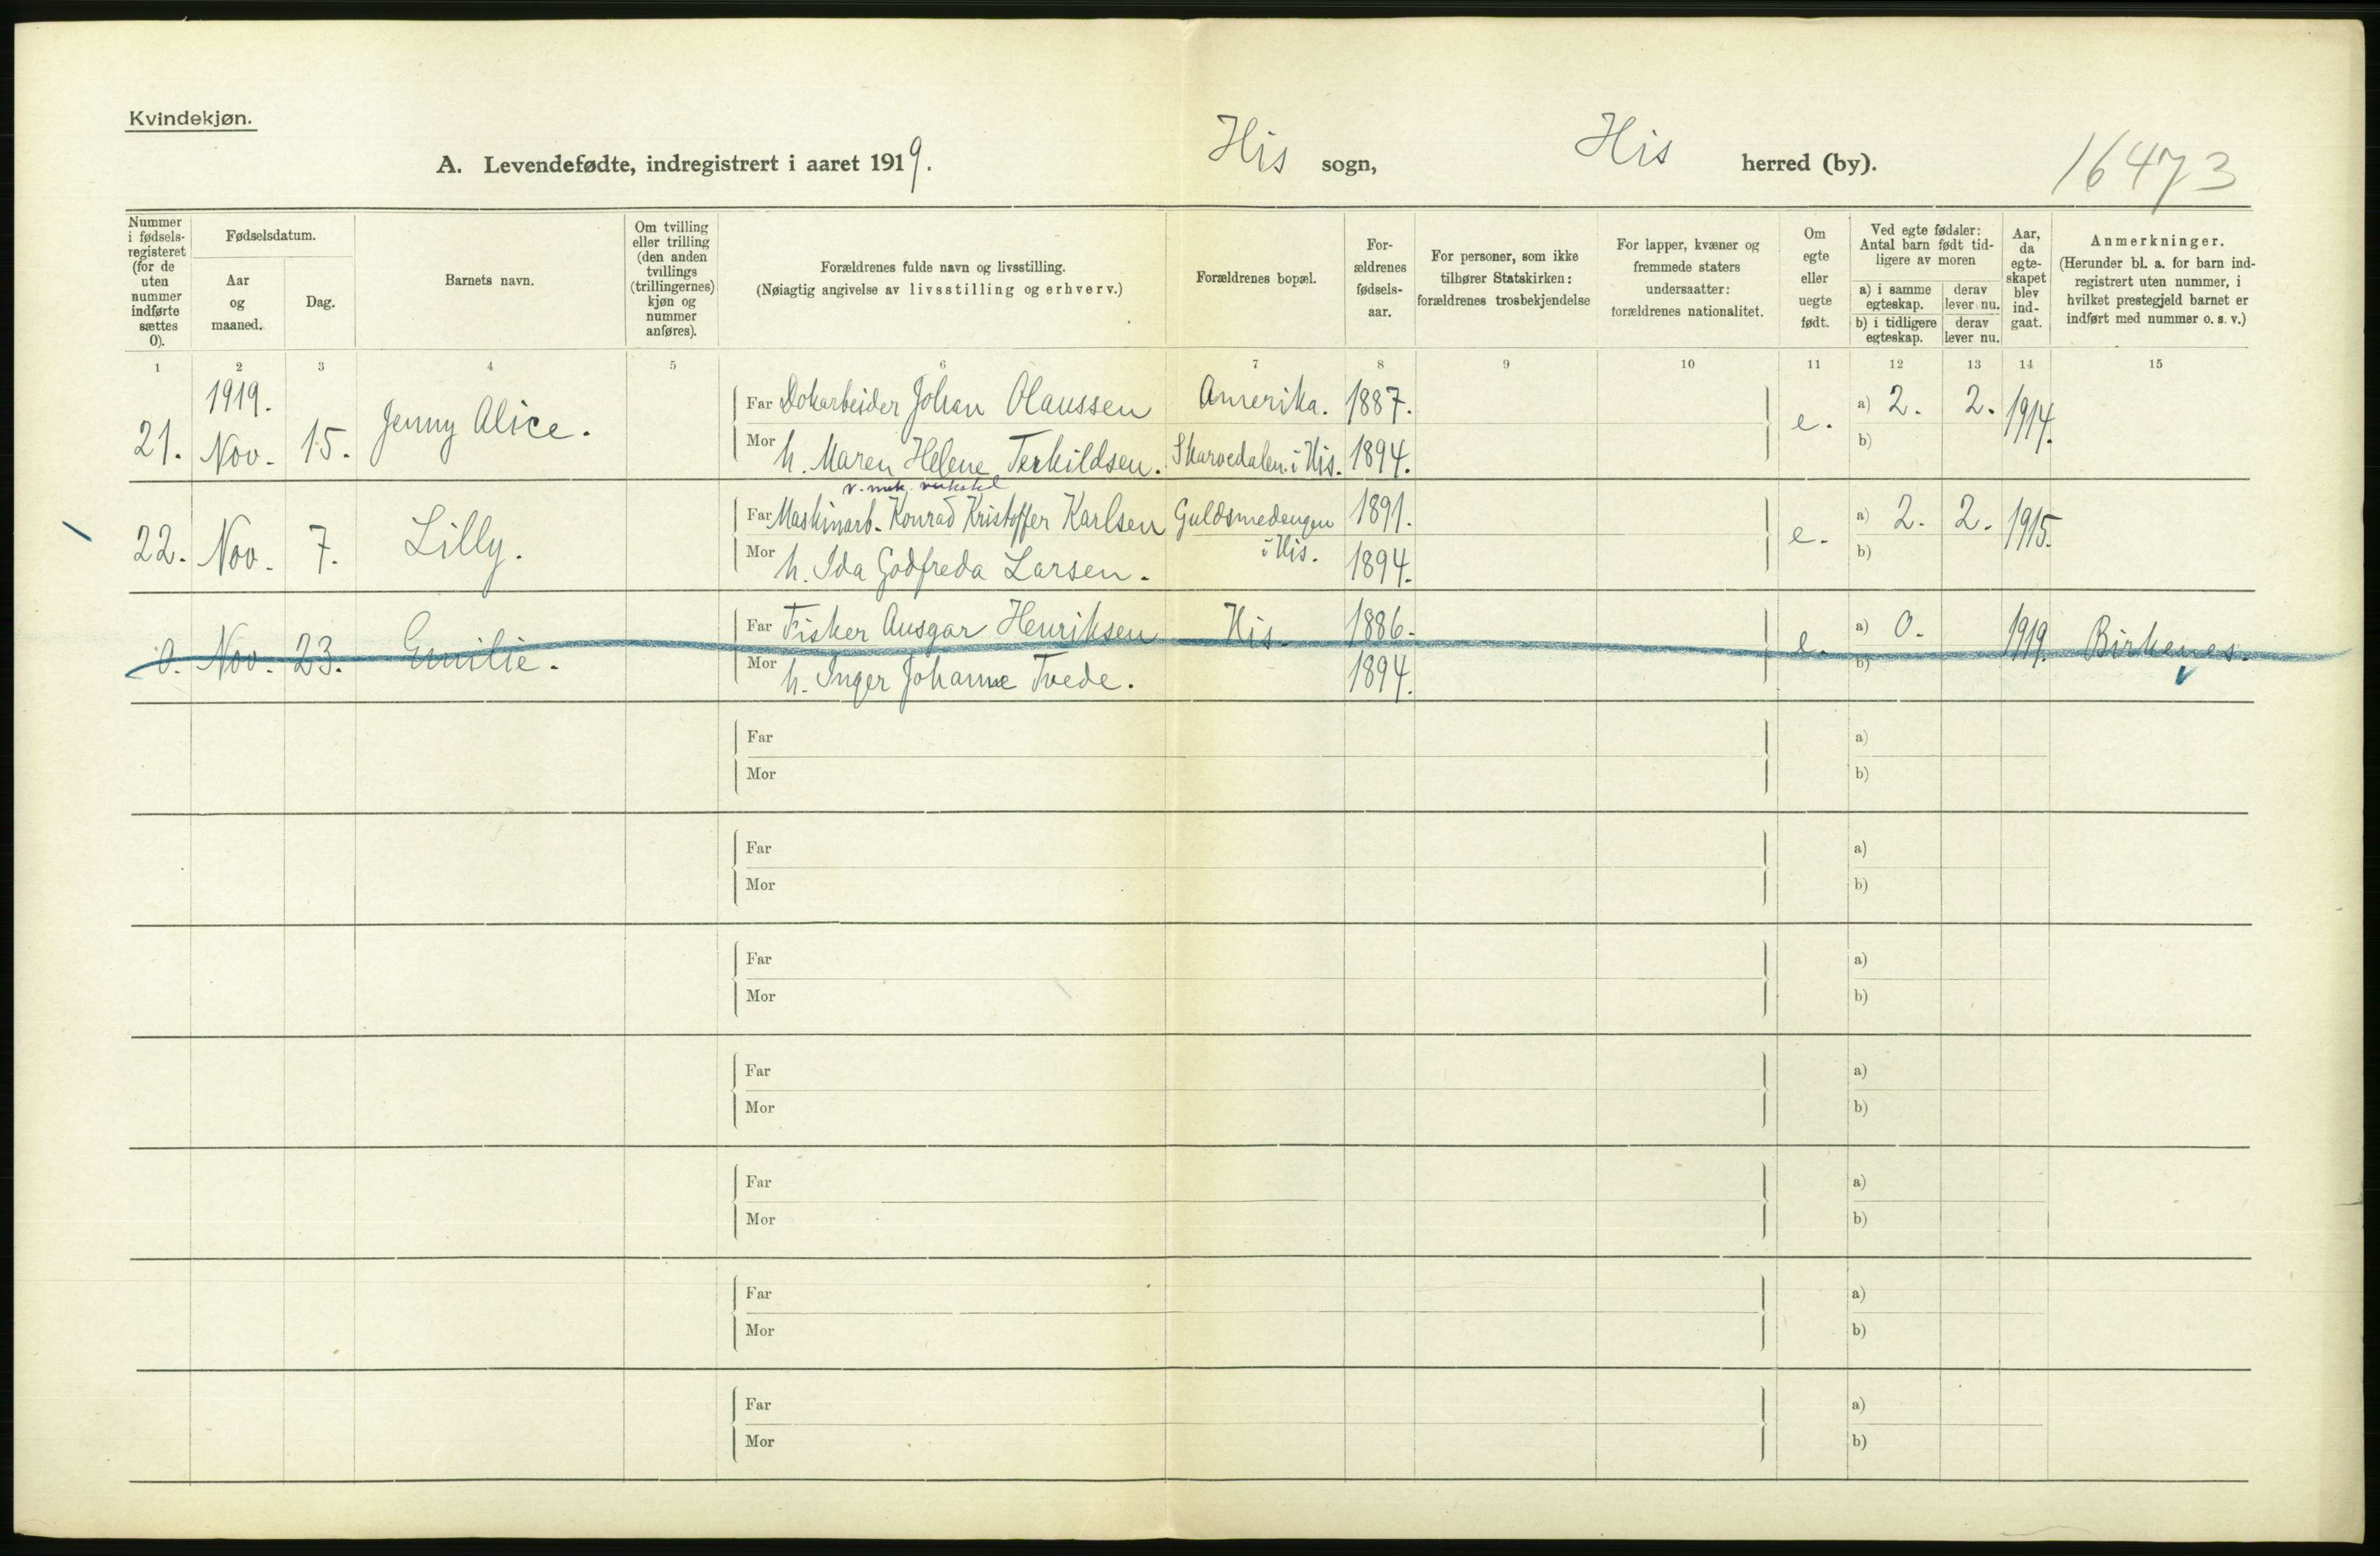 Kvindekjøn.
A. Levendefødte, indregistrert i aaret 1919. His sogn, His herred (by). 16473
Nummer i fødsels-registeret (for de uten nummer indførte sættes 0).
Fødselsdatum.
Aar og maaned.
Dag.
Barnets navn.
Om tvilling eller trilling (den anden tvillings (trillingernes) kjøn og nummer anføres).
Forældrenes fulde navn og livsstilling.
(Nøiagtig angivelse av livsstilling og erhverv.)
Forældrenes bopæl.
For-ældrenes fødsels-aar.
For personer, som ikke tilhører Statskirken: forældrenes trosbekjendelse
For lapper, kvæner og fremmede staters undersaatter: forældrenes nationalitet.
Om egte eller uegte født.
Ved egte fødsler: Antal barn født tid-ligere av moren
a) i samme egteskap. derav lever nu.
b) i tidligere egteskap. derav lever nu.
Aar, da egte-skapet blev ind-gaat.
Anmerkninger.
(Herunder bl. a. for barn ind-registrert uten nummer, i hvilket prestegjeld barnet er indført med nummer o. s. v.)
1 2 3 4 5 6 7 8 9 10 11 12 13 14 15
1919.
21. Nov. 15. Jenny Alice. Far Dokarbeider Johan Olaussen Amerika. 1887. e. a) 2. 2. 1914.
Mor h. Maren Helene Terkildsen. Skarvedalen i His. 1894. b)
v. mek. verksted
22. Nov. 7. Lilly. Far Maskinarb. Konrad Kristoffer Karlsen Guldsmedengen i His. 1891. e. a) 2. 2. 1915.
Mor h. Ida Godfreda Larsen. 1894. b)
0. Nov. 23. Emilie. Far Fisker Ansgar Henriksen His. 1886. e. a) 0. 1919. Birkenes.
Mor h. Inger Johanne Tvede. 1894. b)
Far a)
Mor b)
Far a)
Mor b)
Far a)
Mor b)
Far a)
Mor b)
Far a)
Mor b)
Far a)
Mor b)
Far a)
Mor b)